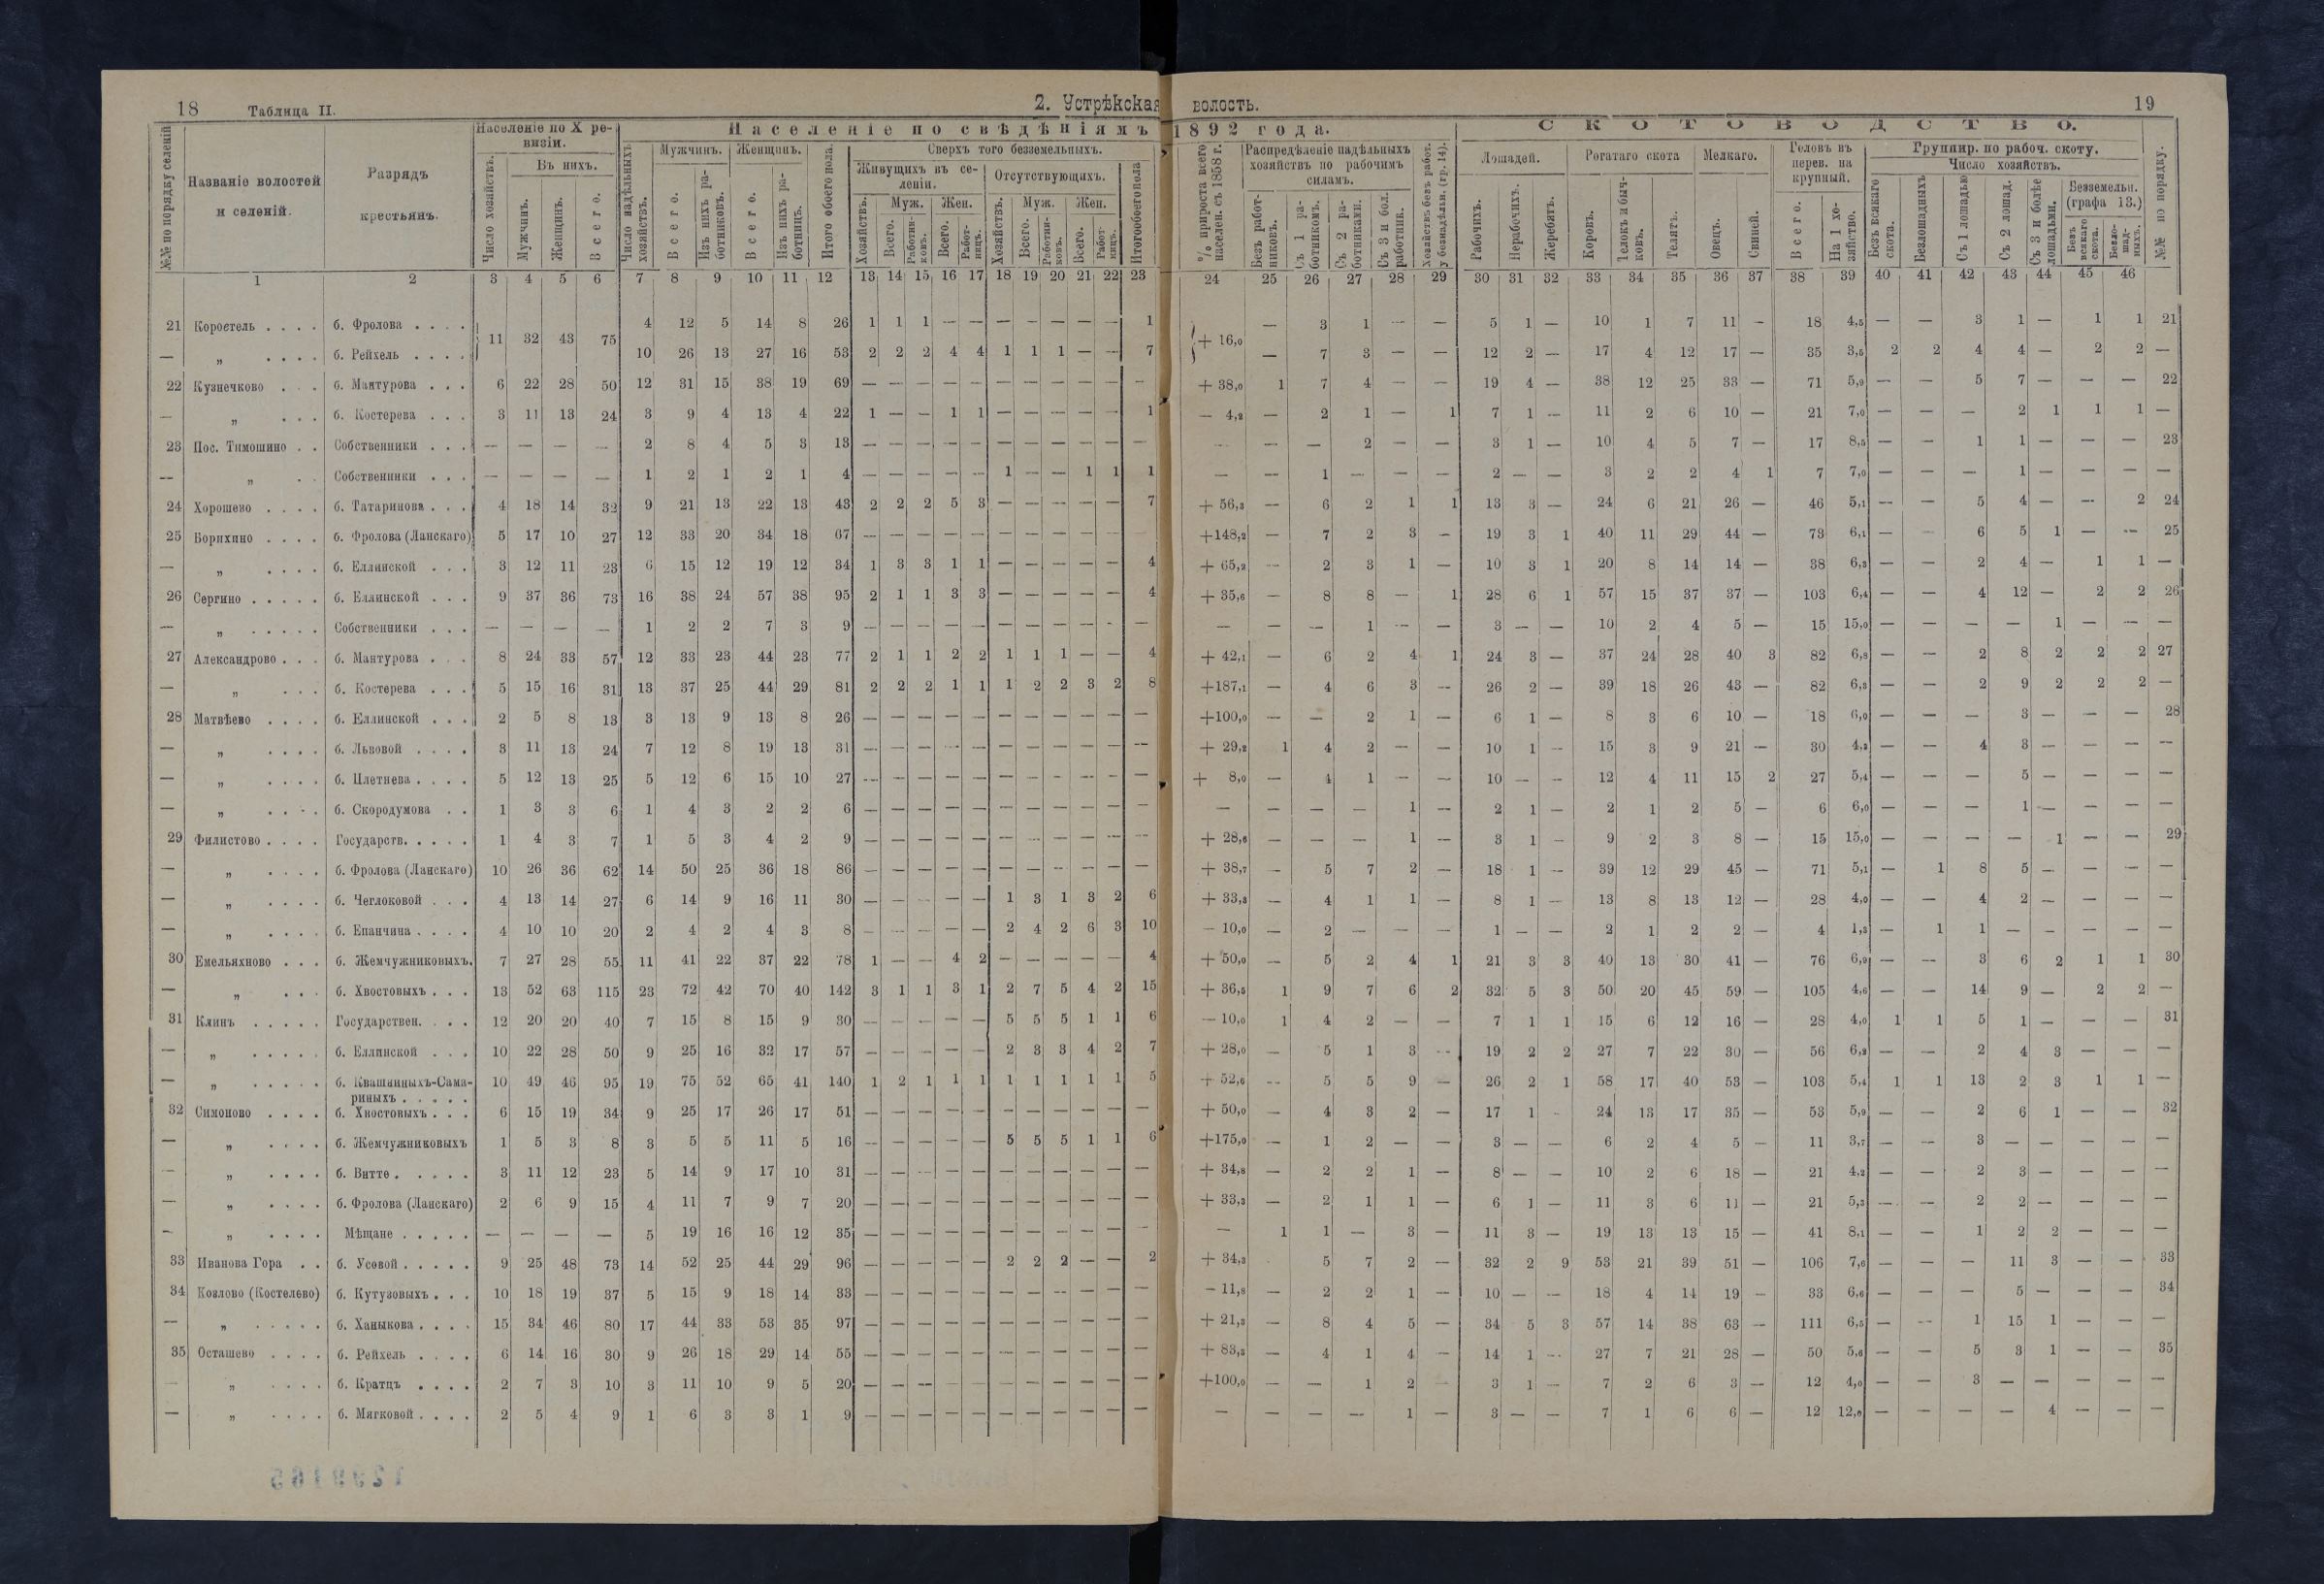 18 Таблица II. 2. Устрѣкская волость. 19
№№ по порядку селеній
Названіе волостей и селеній.
Разрядъ крестьянъ.
Населеніе по X ревизіи.
Число хозяйствъ.
Въ нихъ.
Мужчинъ.
Женщинъ.
Всего.
Населеніе по свѣдѣніямъ 1892 года.
Число надѣльныхъ хозяйствъ.
Мужчинъ.
Всего.
Изъ нихъ работниковъ.
Женщинъ.
Всего.
Изъ нихъ работницъ.
Итого обоего пола.
Сверхъ того безземельныхъ.
Живущихъ въ селеніи.
Хозяйствъ.
Муж.
Всего.
Работниковъ.
Жен.
Всего.
Работницъ.
Отсутствующихъ.
Хозяйствъ.
Муж.
Всего.
Работниковъ.
Жен.
Всего.
Работницъ.
Итого обоего пола
% прироста всего населен. съ 1858 г.
Распредѣленіе надѣльныхъ хозяйствъ по рабочимъ силамъ.
Безъ работниковъ.
Съ 1 работникомъ.
Съ 2 работниками.
Съ 3 и бол. работник.
Хозяйствъ безъ работ. у безнадѣльн. (гр. 14).
СКОТОВОДСТВО.
Лошадей.
Рабочихъ.
Нерабочихъ.
Жеребятъ.
Рогатаго скота
Коровъ.
Телокъ и бычковъ.
Телятъ.
Мелкаго.
Овецъ.
Свиней.
Головъ въ перев. на крупный.
Всего.
На 1 хозяйство.
Группир. по рабоч. скоту.
Число хозяйствъ.
Безъ всякаго скота.
Безлошадныхъ
Съ 1 лошадью
Съ 2 лошад.
Съ 3 и болѣе лошадьми.
Безземельн. (графа 13.)
Безъ всякаго скота.
Безлошадныхъ.
№№ по порядку.
1 2 3 4 5 6 7 8 9 10 11 12 13 14 15 16 17 18 19 20 21 22 23 24 25 26 27 28 29 30 31 32 33 34 35 36 37 38 39 40 41 42 43 44 45 46
21 Коростель . . . . б. Фролова . . . . 11 32 43 75 4 12 5 14 8 26 1 1 1 — — — — — — — 1 + 16,0 — 3 1 — — 5 1 — 10 1 7 11 - 18 4,5 — — 3 1 — 1 1 21
— „ . . . . б. Рейхель . . . . 10 26 13 27 16 53 2 2 2 4 4 1 1 1 — — 7 — 7 3 — — 12 2 — 17 4 12 17 — 35 3,5 2 2 4 4 — 2 2 —
22 Кузнечково . . . б. Мантурова . . . 6 22 28 50 12 31 15 38 19 69 — — — — — — — — — — - + 38,0 1 7 4 — — 19 4 — 38 12 25 33 — 71 5,9 — — 5 7 — — — 22
— „ . . . б. Костерева . . . 3 11 13 24 3 9 4 13 4 22 1 — — 1 1 — — — — — 1 — 4,2 — 2 1 — 1 7 1 — 11 2 6 10 — 21 7,0 — — — 2 1 1 1 —
23 Пос. Тимошино . . Собственники . . . — — — — 2 8 4 5 3 13 — — — — — — — — — — — — — — 2 — — 3 1 — 10 4 5 7 — 17 8,5 — — 1 1 — — — 23
— „ . . Собственники . . . — — — — 1 2 1 2 1 4 — — — — — 1 — — 1 1 1 — — 1 — — — 2 — — 3 2 2 4 1 7 7,0 — — — 1 — — — —
24 Хорошево . . . . б. Татаринова . . . 4 18 14 32 9 21 13 22 13 43 2 2 2 5 3 — — — — — 7 + 56,3 — 6 2 1 1 13 3 — 24 6 21 26 — 46 5,1 — — 5 4 — — 2 24
25 Борихино . . . . б. Фролова (Ланскаго) 5 17 10 27 12 33 20 34 18 67 — — — — — — — — — — +148,2 — 7 2 3 - 19 3 1 40 11 29 44 — 73 6,1 — — 6 5 1 — — 25
— „ . . . . б. Еллинской . . . 3 12 11 23 6 15 12 19 12 34 1 3 3 1 1 — — — — — 4 + 65,2 — 2 3 1 — 10 3 1 20 8 14 14 — 38 6,3 — — 2 4 — 1 1 —
26 Сергино . . . . . б. Еллинской . . . 9 37 36 73 16 38 24 57 38 95 2 1 1 3 3 — — — — — 4 + 35,6 — 8 8 — 1 28 6 1 57 15 37 37 — 103 6,4 — — 4 12 — 2 2 26
— „ . . . . . Собственники . . . — — — — 1 2 2 7 3 9 — — — — — — — — — - — — — — 1 — — 3 — — 10 2 4 5 — 15 15,0 — — — — 1 — — —
27 Александрово . . . б. Мантурова . . . 8 24 33 57 12 33 23 44 23 77 2 1 1 2 2 1 1 1 — — 4 + 42,1 — 6 2 4 1 24 3 — 37 24 28 40 3 82 6,8 — — 2 8 2 2 2 27
— „ . . . б. Костерева . . . 5 15 16 31 13 37 25 44 29 81 2 2 2 1 1 1 2 2 3 2 8 +187,1 — 4 6 3 — 26 2 — 39 18 26 43 — 82 6,3 — — 2 9 2 2 2 —
28 Матвѣево . . . . б. Еллинской . . . 2 5 8 13 3 13 9 13 8 26 — — — — — — — — — — — +100,0 — — 2 1 — 6 1 — 8 3 6 10 — 18 6,0 — — — 3 — — — 28
— „ . . . . б. Львовой . . . . 3 11 13 24 7 12 8 19 13 31 — — — — — — — — — — — + 29,2 1 4 2 — — 10 1 - 15 3 9 21 — 30 4,3 — — 4 3 — — — —
— „ . . . . б. Плетнева . . . . 5 12 13 25 5 12 6 15 10 27 — — — — — — — — — — — + 8,0 — 4 1 — — 10 — — 12 4 11 15 2 27 5,4 — — — 5 — — — —
— „ . . . . б. Скородумова . . 1 3 3 6 1 4 3 2 2 6 — — — — — — — — — — — — — — — 1 — 2 1 — 2 1 2 5 — 6 6,0 — — — 1 — — — —
29 Филистово . . . . Государств. . . . . 1 4 3 7 1 5 3 4 2 9 — — — — — — — — — — — + 28,6 — — — 1 — 3 1 - 9 2 3 8 — 15 15,0 — — — — 1 — — 29
— „ . . . . б. Фролова (Ланскаго) 10 26 36 62 14 50 25 36 18 86 — — — — — — — — — — — + 38,7 - 5 7 2 — 18 1 — 39 12 29 45 — 71 5,1 — 1 8 5 — — — —
— „ . . . . б. Чеглоковой . . . 4 13 14 27 6 14 9 16 11 30 — — — — — 1 3 1 3 2 6 + 33,3 — 4 1 1 — 8 1 — 13 8 13 12 — 28 4,0 — — 4 2 — — — —
— „ . . . . б. Епанчина . . . . 4 10 10 20 2 4 2 4 3 8 — — — — — 2 4 2 6 3 10 — 10,0 — 2 — — — 1 — — 2 1 2 2 — 4 1,3 — 1 1 — — — — —
30 Емельяхново . . . б. Жемчужниковыхъ. 7 27 28 55 11 41 22 37 22 78 1 — — 4 2 — — — — — 4 + 50,0 — 5 2 4 1 21 3 3 40 13 30 41 — 76 6,9 — — 3 6 2 1 1 30
— „ . . . б. Хвостовыхъ . . . 13 52 63 115 23 72 42 70 40 142 3 1 1 3 1 2 7 5 4 2 15 + 36,5 1 9 7 6 2 32 5 3 50 20 45 59 — 105 4,6 — — 14 9 — 2 2 —
31 Клинъ . . . . . Государствен. . . . 12 20 20 40 7 15 8 15 9 30 — — — — — 5 5 5 1 1 6 — 10,0 1 4 2 — — 7 1 1 15 6 12 16 — 28 4,0 1 1 5 1 — — — 31
— „ . . . . . б. Еллинской . . . 10 22 28 50 9 25 16 32 17 57 — — — — — 2 3 3 4 2 7 + 28,0 — 5 1 3 — 19 2 2 27 7 22 30 — 56 6,2 — — 2 4 3 — — —
— „ . . . . . б. Квашнныхъ-Сама- 10 49 46 95 19 75 52 65 41 140 1 2 1 1 1 1 1 1 1 1 5 + 52,6 — 5 5 9 — 26 2 1 58 17 40 53 — 103 5,4 1 1 13 2 3 1 1 —
риныхъ . . . . .
32 Симоново . . . . б. Хвостовыхъ . . . 6 15 19 34 9 25 17 26 17 51 — — — — — — — — — — — + 50,0 — 4 3 2 — 17 1 - 24 13 17 35 — 53 5,9 — — 2 6 1 — — 32
— „ . . . . б. Жемчужниковыхъ 1 5 3 8 3 5 5 11 5 16 — — — — — 5 5 5 1 1 6 +175,0 — 1 2 — — 3 — — 6 2 4 5 — 11 3,7 — — 3 — — — — —
— „ . . . . б. Витте . . . . . 3 11 12 23 5 14 9 17 10 31 — — — — — — — — — — — + 34,8 — 2 2 1 — 8 — — 10 2 6 18 — 21 4,2 — — 2 3 — — — —
— „ . . . . б. Фролова (Ланскаго) 2 6 9 15 4 11 7 9 7 20 — — — — — — — — — — — + 33,3 — 2 1 1 — 6 1 — 11 3 6 11 — 21 5,3 — — 2 2 — — — —
— „ . . . . Мѣщане . . . . . — — — — 5 19 16 16 12 35 — — — — — — — — — — — — 1 1 — 3 — 11 3 — 19 13 13 15 — 41 8,1 — — 1 2 2 — — —
33 Иванова Гора . . б. Усовой . . . . . 9 25 48 73 14 52 25 44 29 96 — — — — — 2 2 2 — — 2 + 34,2 5 7 2 — 32 2 9 53 21 39 51 — 106 7,6 — — — 11 3 — — 33
34 Козлово (Костелево) б. Кутузовыхъ . . . 10 18 19 37 5 15 9 18 14 33 — — — — — — — — — — — — 11,8 — 2 2 1 — 10 — — 18 4 14 19 — 33 6,6 — — — 5 — — — 34
— „ . . . . . б. Ханыкова . . . . 15 34 46 80 17 44 33 53 35 97 — — — — — — — — — — — + 21,3 — 8 4 5 — 34 5 3 57 14 38 63 — 111 6,5 — — 1 15 1 — — —
35 Осташево . . . . б. Рейхель . . . . 6 14 16 30 9 26 18 29 14 55 — — — — — — — — — — — + 83,3 — 4 1 4 — 14 1 — 27 7 21 28 — 50 5,6 — — 5 3 1 — — 35
— „ . . . . б. Кратцъ . . . . 2 7 3 10 3 11 10 9 5 20 — — — — — — — — — — — +100,0 — — 1 2 — 3 1 — 7 2 6 3 — 12 4,0 — — 3 — — — — —
— „ . . . . б. Мягковой . . . . 2 5 4 9 1 6 3 3 1 9 — — — — — — — — — — — — — — — 1 — 3 — — 7 1 6 6 — 12 12,0 — — — — 4 — — —